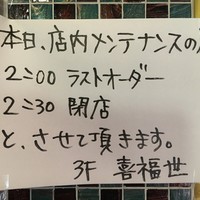 本日、店内メンテナンスの
2:00 ラストオーダー
2:30 閉店
と、させて頂きます。
3F 喜福世